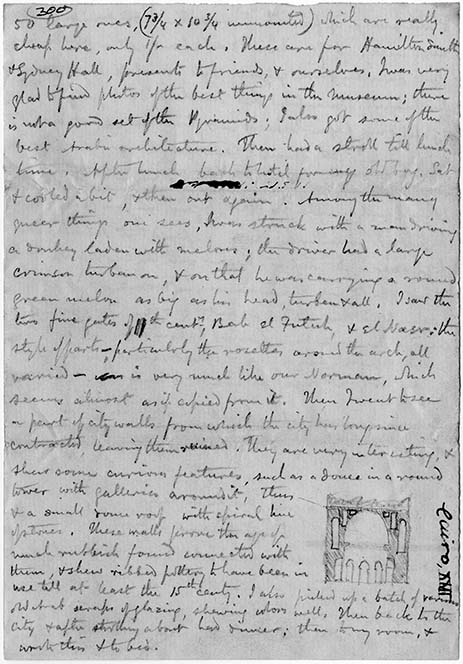 300
50 large ones, (7 3/4 x 10 3/4 unmounted) which are really
cheap here, only 1/- each. These are for Hamilton Smith
& Sydney Hall, presents to friends, & ourselves. I was very
glad to find photos of the best things in the museum; there
is not a good set of the Pyramids; I also got some of the
best Arab architecture. Then had a stroll till lunch
time. After lunch back to hotel for my old bag. Sat
& cooled a bit, & then out again. Among the many
queer things one sees, I was struck with a man driving
a donkey laden with melons; the driver had a large
crimson turban on, & on that he was carrying a round
green melon as big as his head turban & all. I saw the
two fine gates of 11th cent, Bab el Futuh, & el Nasr. the
style of parts - particularly the rosettes around the arch, all
varied - is very much like our Norman, which
seems almost as if copied from it. Then I went to see
a part of city walls from which the city has long since
contracted leaving them ruined. They are very interesting, &
shew some curious features, such as a dome in a round
tower with galleries around it, thus
& a small dome roof with spiral line
of stones. These walls prove the age of
much rubbish found connected with
them, & shew ribbed pottery to have been in
use till at least the 15th centy. I also picked up a batch of various
old Arab scraps of glazing, shewing colors well. Then back to the
city & after strolling about had dinner; then to my room, &
wrote this & to bed.
Cairo,